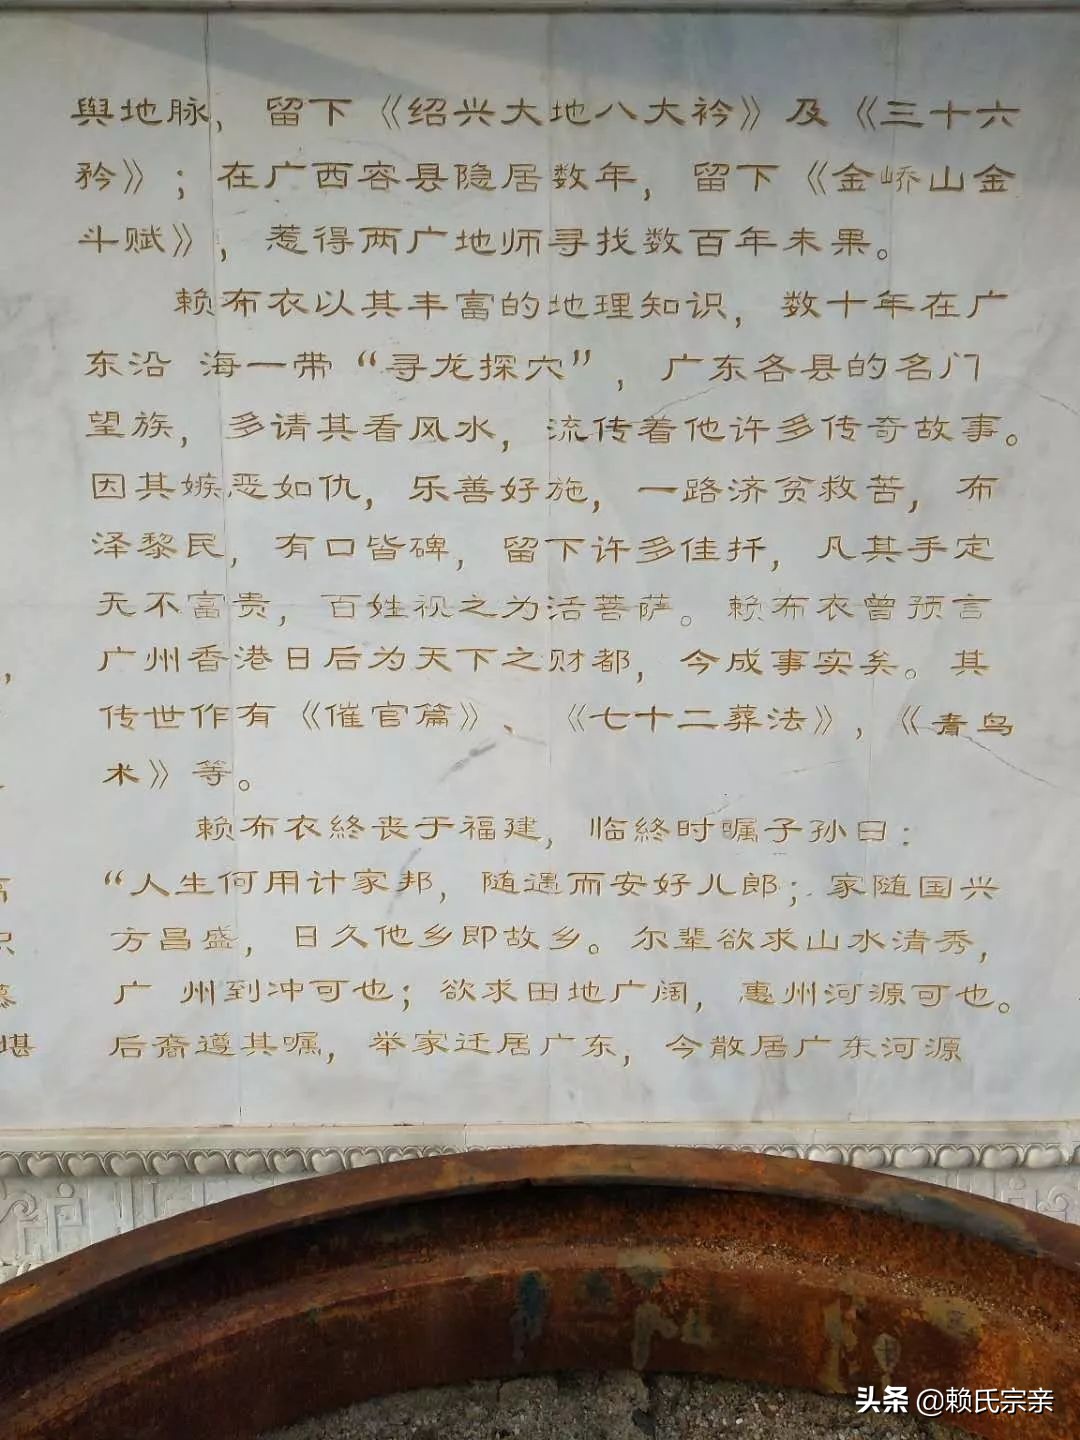 舆地脉，留下《绍兴大地八大衿》及《三十六
矜》；在广西容县隐居数年，留下《金峤山金
斗赋》，惹得两广地师寻找数百年未果。
赖布衣以其丰富的地理知识，数十年在广
东沿 海一带“寻龙探穴”，广东各县的名门
望族，多请其看风水，流传着他许多传奇故事。
因其嫉恶如仇，乐善好施，一路济贫救苦，布
泽黎民，有口皆碑，留下许多佳扦，凡其手定
无不富贵，百姓视之为活菩萨。赖布衣曾预言
广州香港日后为天下之财都，今成事实矣。其
传世作有《催官篇》、《七十二葬法》，《青鸟
术》等。
赖布衣終丧于福建，临終时嘱子孙曰：
“人生何用计家邦，随遇而安好儿郎；家随国兴
方昌盛，日久他乡即故乡。尔辈欲求山水清秀，
广 州到冲可也；欲求田地广阔，惠州河源可也。
后裔遵其嘱，举家迁居广东，今散居广东河源
堪
头条 @赖氏宗亲